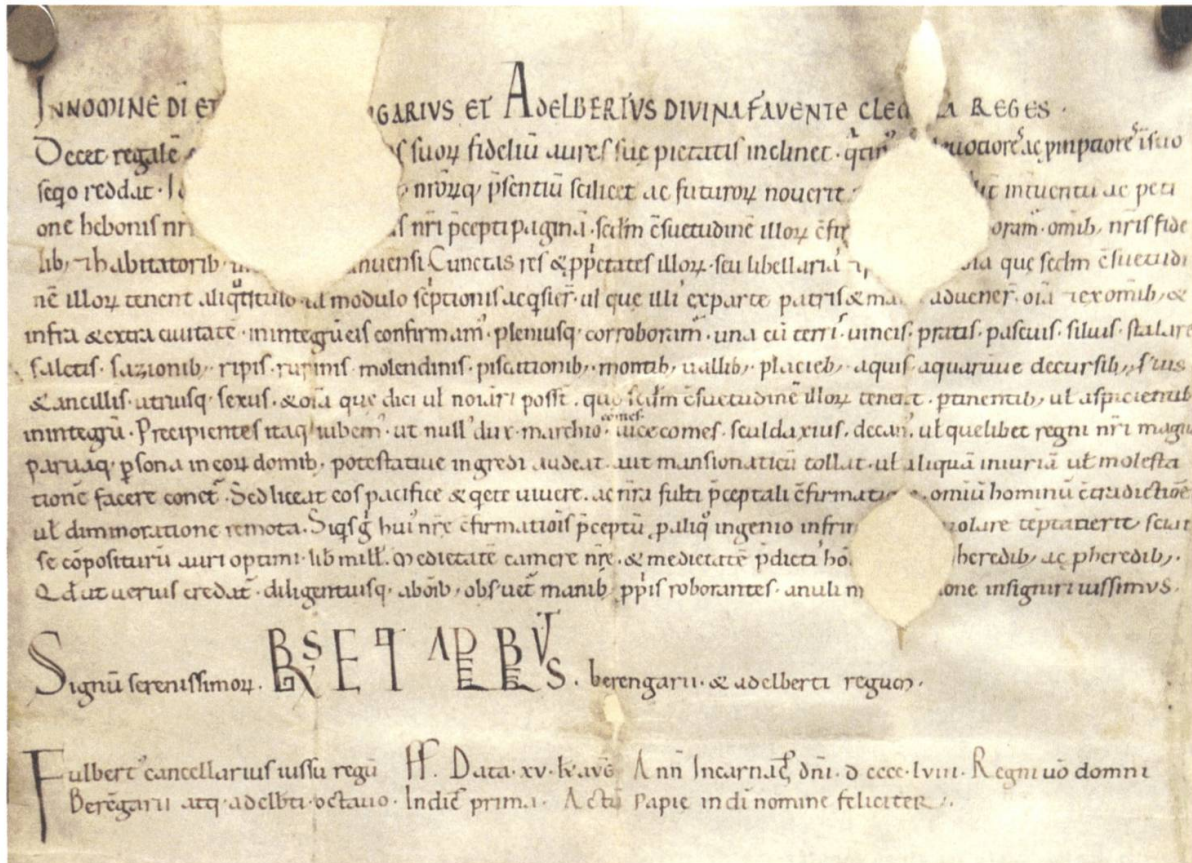 INNOMINE DI ET GARIVS ET ADELBERTVS DIVINA FAVENTE CLE A REGES ·
Decet regalē ſ ſuoꝝ fideliū aureſ ſuę pietatiſ inclinet · ac ī ſuo
ſeq̄o reddat · nr̄orūq, p̄ſentiū ſcilicet ac futuroꝝ noverit intuentu ac peti
one hebonis nr̄i ſ nr̄i p̄cepti pagina · ſcdm c̄ſuetudinē illoꝝ c̄fir oram · omīb, nr̄iſ fide
lib, ⁊ habitatorib, nuenſi Cunctaſ reſ & ꝓp̄etateſ illoꝝ · ſeu libellaria que ſecdm c̄ſuetudi
nē illoꝝ tenent aliq̄ titulo ul modulo ſc̄ptioniſ acq̄ſier̄ · ul que illi exparte patriſ & ma advener̄ · oīa ⁊ ex omīb, &
infra & extra civitatē · inintegrū eiſ confirmam' · pleniuſq, corroboram' · una cū terriſ · vineiſ · pratiſ · paſcuiſ · ſilviſ · ſtalare
ſaletiſ · ſazionib, · ripiſ · rupiniſ · molendiniſ · piſcationib, · montib, · vallib, · placieb, · aquiſ · aquarūve decurſib, · ſ'viſ
& ancilliſ · utriuſq, ſexuſ · & oīa que dici ul noīari poſſt̄ · que ſcdm c̄ſuetudinē illoꝝ tenent · ptinentib, ul aſpicientib
inintegrū · Precipienteſ itaq, iubem' · ut null' dux · marchio · comeſ · vicecomeſ · ſculdaxiuſ · decan' · ul quelibet regni nr̄i magn
parvaq, pſona in eoꝝ domib, poteſtative ingredi audeat · aut manſionaticū tollat · ul aliquā iniuriā ul moleſta
tionē facere conet' · Sed liceat eoſ pacifice & q̄ete vivere · ac nr̄a fulti p̄ceptali c̄firmati · omiū hominū c̄tradictiōe
ul diminoratione remota · Siqſg' hui' nr̄e c̄firmatioīſ p̄ceptū p aliq̄ ingenio infrin olare tēptaverit · ſciat
ſe cōpoſiturū auri optimi · lib mill' · Medietatē camere nr̄ę · & medietatē p̄dicti hō heredib, ac pheredib, ·
Qd ut veriuſ credat' · diligentiuſq, ab oīb, obſvet' manib, ꝓp̄iſ roboranteſ · anuli n one inſigniri iuſſimuſ ·
Signū ſereniſſimoꝝ · berengarii · & adelberti regum ·
Fulbert' cancellariuſ iuſſu regū Data · xv · kƚ avḡ Ann̄ Incarnac̄ dn̄i · d cccc · lviii · Regni vō domni
Berēgarii atq, adelb̄ti · octavo · Indic̄ prima · Actū Papię in dī nomine feliciter ·